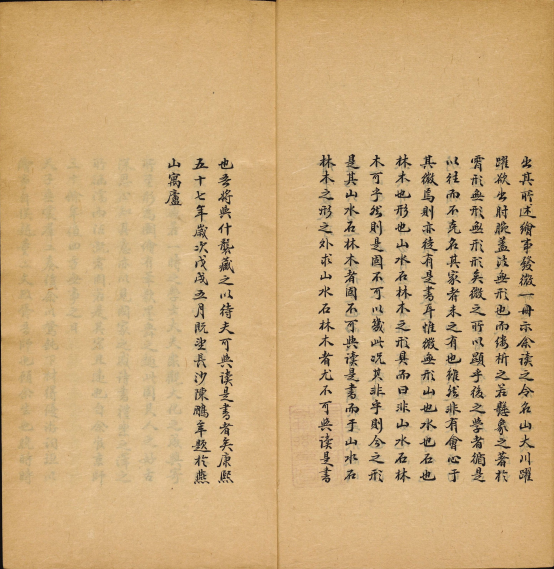 出其所述繪事發微一冊示余读之令名山大川躍
躍欲出肘腕蓋法無形也而縷析之若懸象之著於
霄形無形無形形矣微之所以顯乎後之學者循是
以往而不克名其家者未之有也雖然非有會心于
其微焉則亦有是書耳惟微無形山也水也石也
林木也形也山水石林木之形具而曰非山水石林
木可乎然則是固不可以幾此況其非乎則今之形
是其山水石林木者固不可與读是書而于山水石
林木之形之外求山水石林木者尤不可與读是書
也吾將與什襲藏之以待夫可與读是書者矣康熙
五十七年歲次戊戌五月既望長沙陳鵬年題於燕
山寓廬